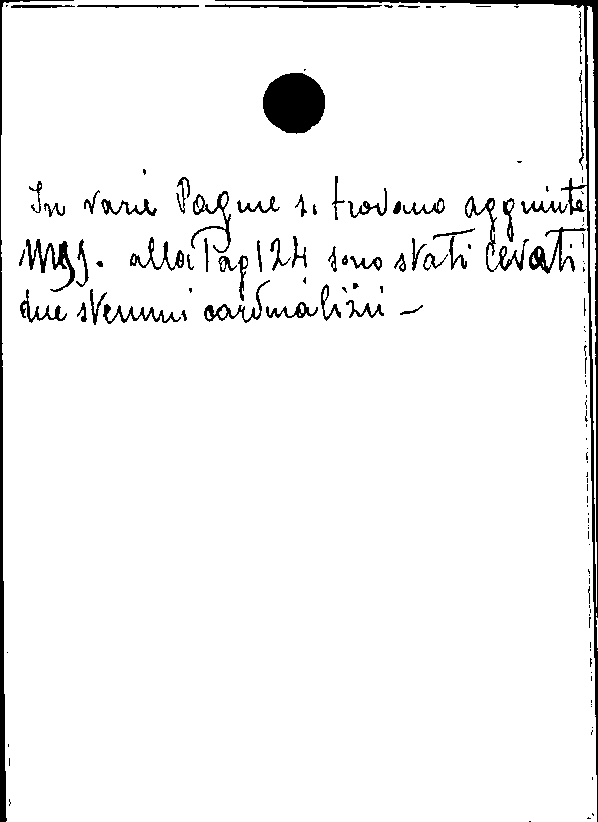 In varie Pagine si trovano aggiunte
Mss. alla Pag 124 sono stati levati
due stemmi cardinalizii –